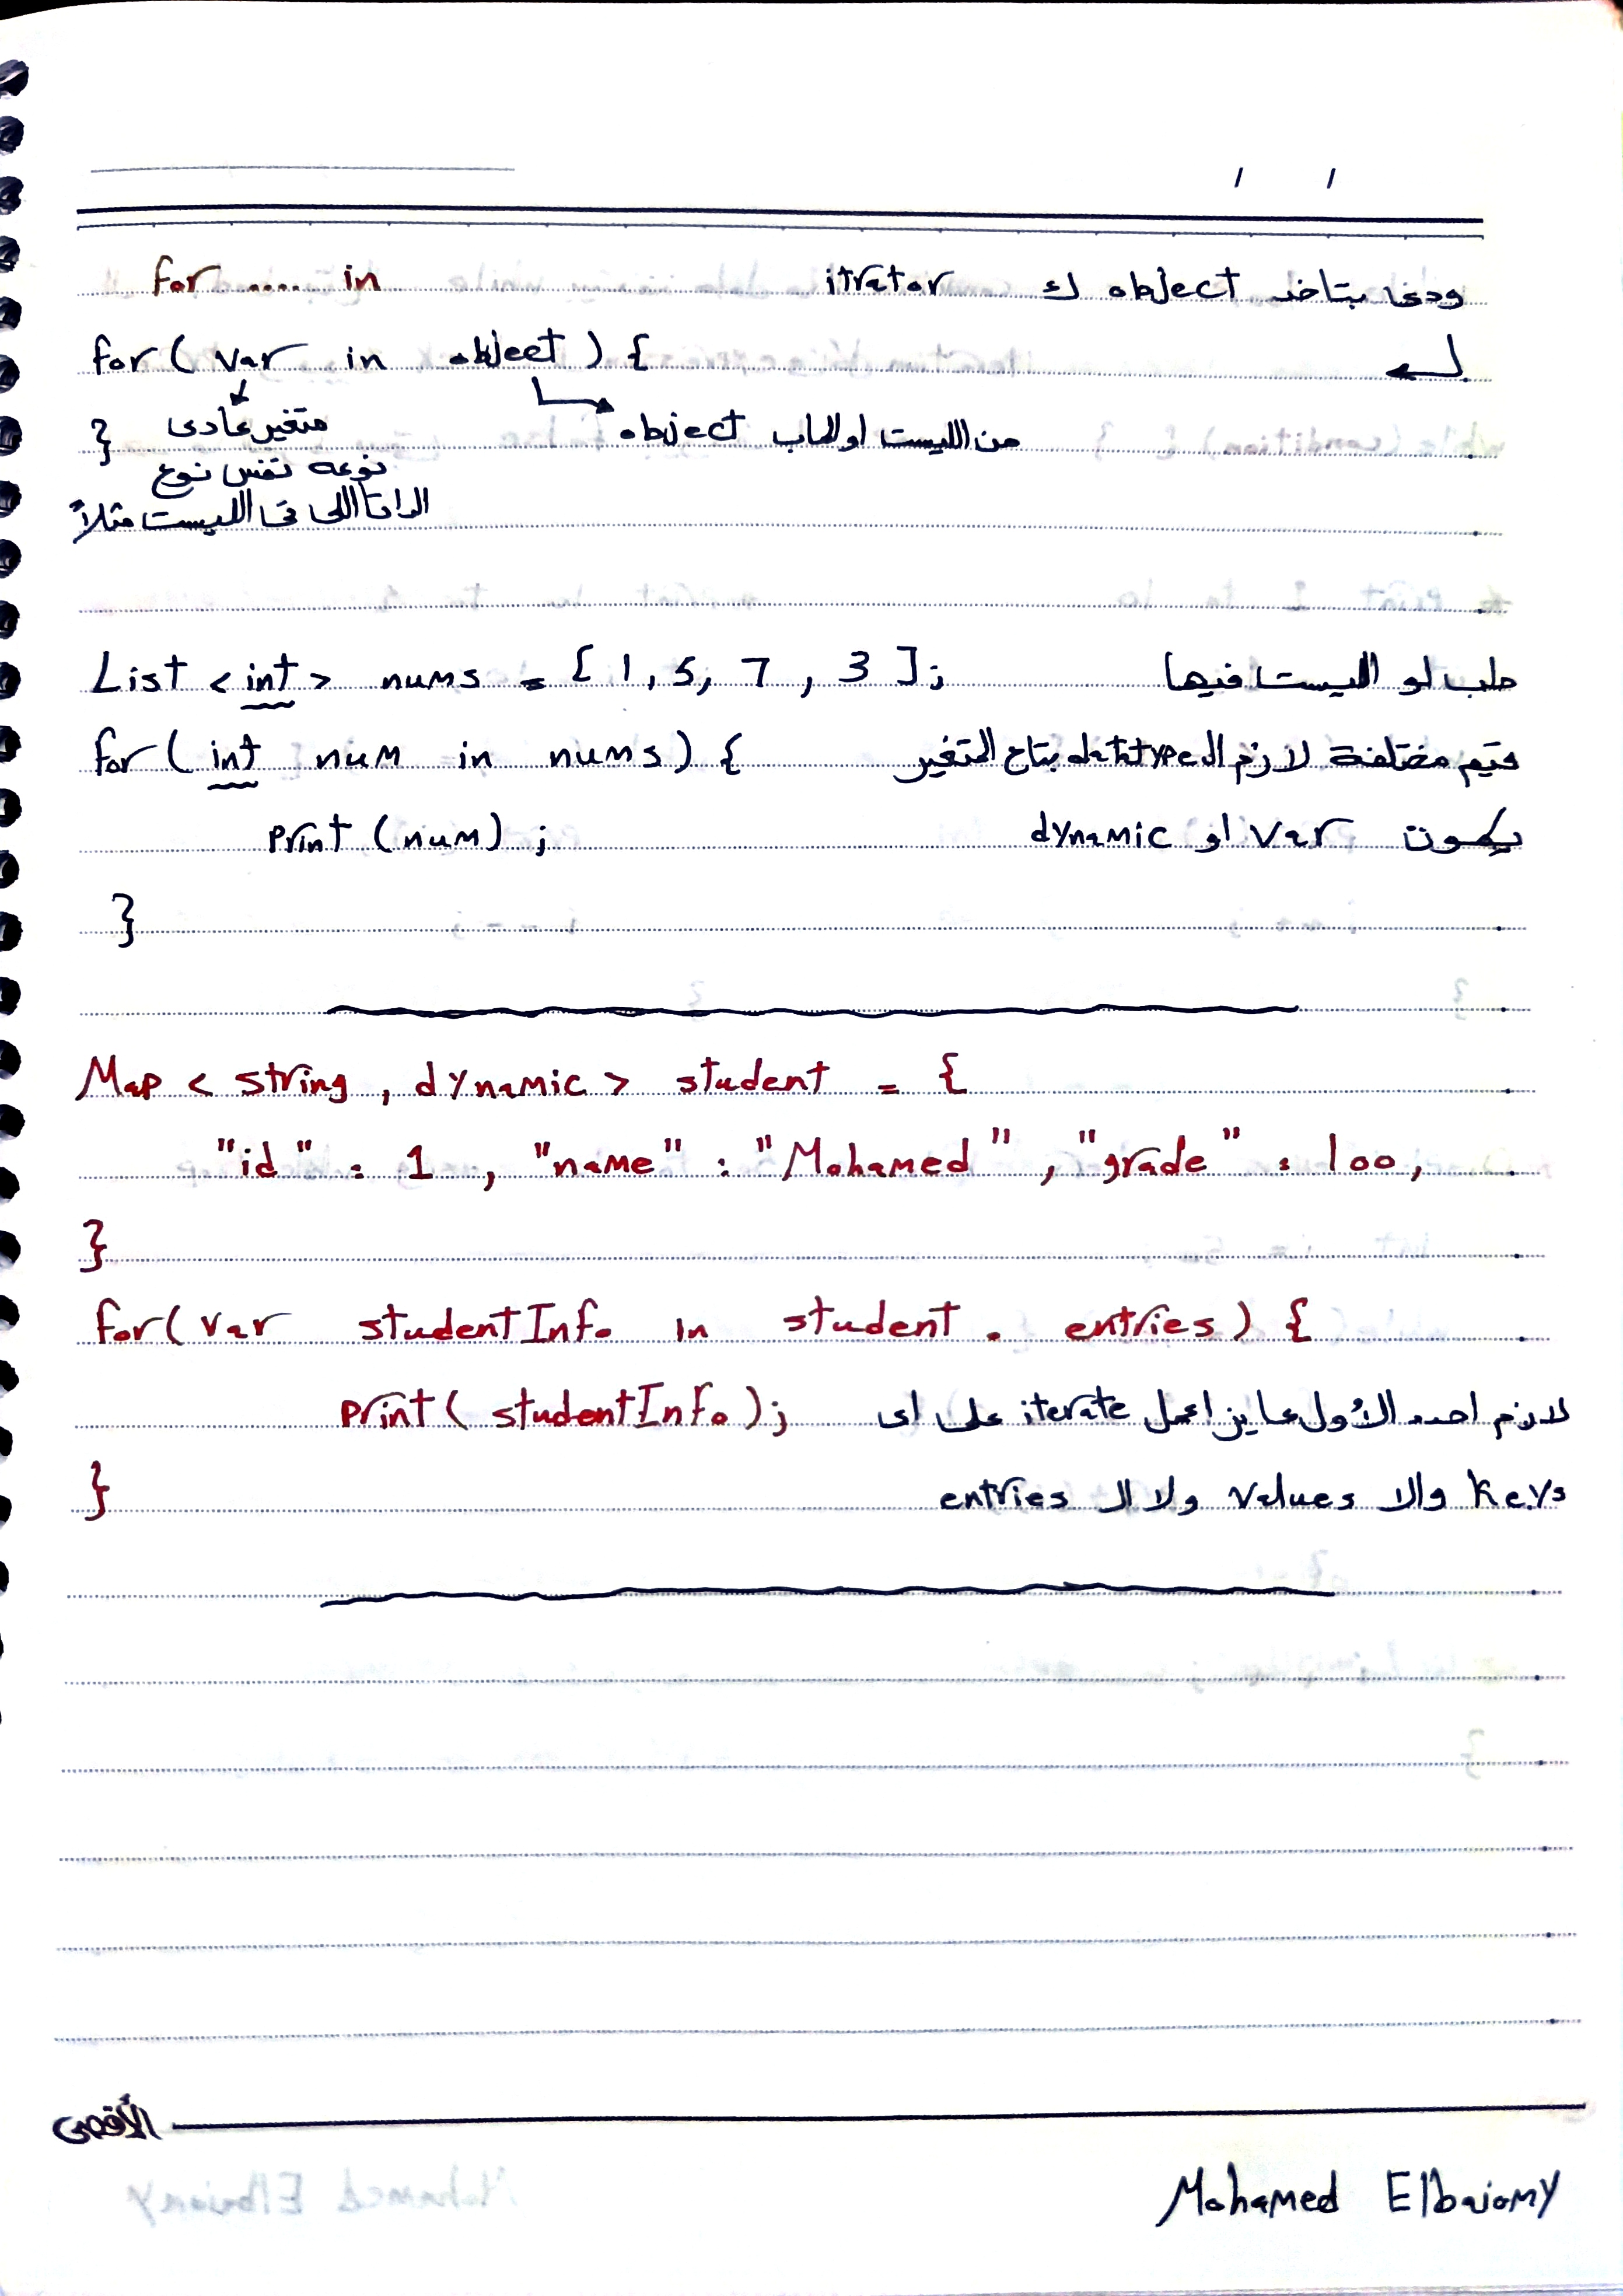 / /
for ..... in ودى بتاخد object ك itrator
for ( var in object ) {
متغير عادى
} من الليست او الماب object
نوعه نفس نوع
الداتا اللى فى الليست مثلاً
List < int > nums = [ 1, 5, 7, 3 ]; طب لو الليست فيها
for ( int num in nums ) { قيم مختلفة لازم ال datatype بتاع المتغير
print (num) ; يكون var او dynamic
}
Map < string , dynamic > student = {
"id" : 1 , "name" : "Mohamed" , "grade" : 100,
}
for( var studentInfo in student . entries ) {
print ( studentInfo ); لازم احدد الأول عايز اعمل iterate على اى
} keys والا values ولا ال entries
الأقصى
Mohamed Elbaiomy